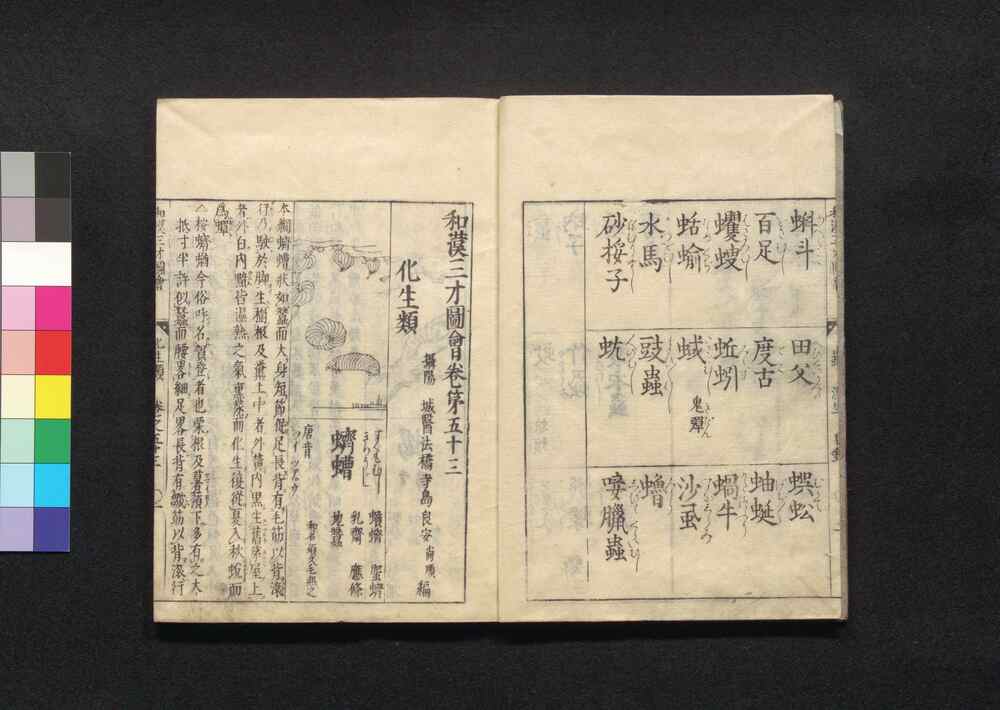 蝌斗 田父 蜈蚣
百足 度古 蚰蜒
蠼螋 蚯蚓 蝸牛
蛞蝓 蜮 鬼彈 沙虱
水馬 豉蟲 蟧
砂挼子 蚘 唼臘蟲
和漢三才圖會卷第五十三
攝陽 城醫法橋寺島良安尚順編
化生類
蠐螬
すくもむし
蟦蠐 蜰蠐
乳齋 應條
地蠶
唐音
和名須久毛無之
本綱蠐螬狀如蠶而大身短節促足長背有毛筋以背滾
行乃駛於脚生樹根及糞土中者外黃內黑生舊茅屋上
者外白內黯皆濕熱之氣熏蒸而化生後從夏入秋蛻而
爲蟬
△按蠐螬今俗呼名賀登者也栗根及薯蕷下多有之大
抵寸半許似蠶而腰畧細足畧長背有皺筋以背滾行